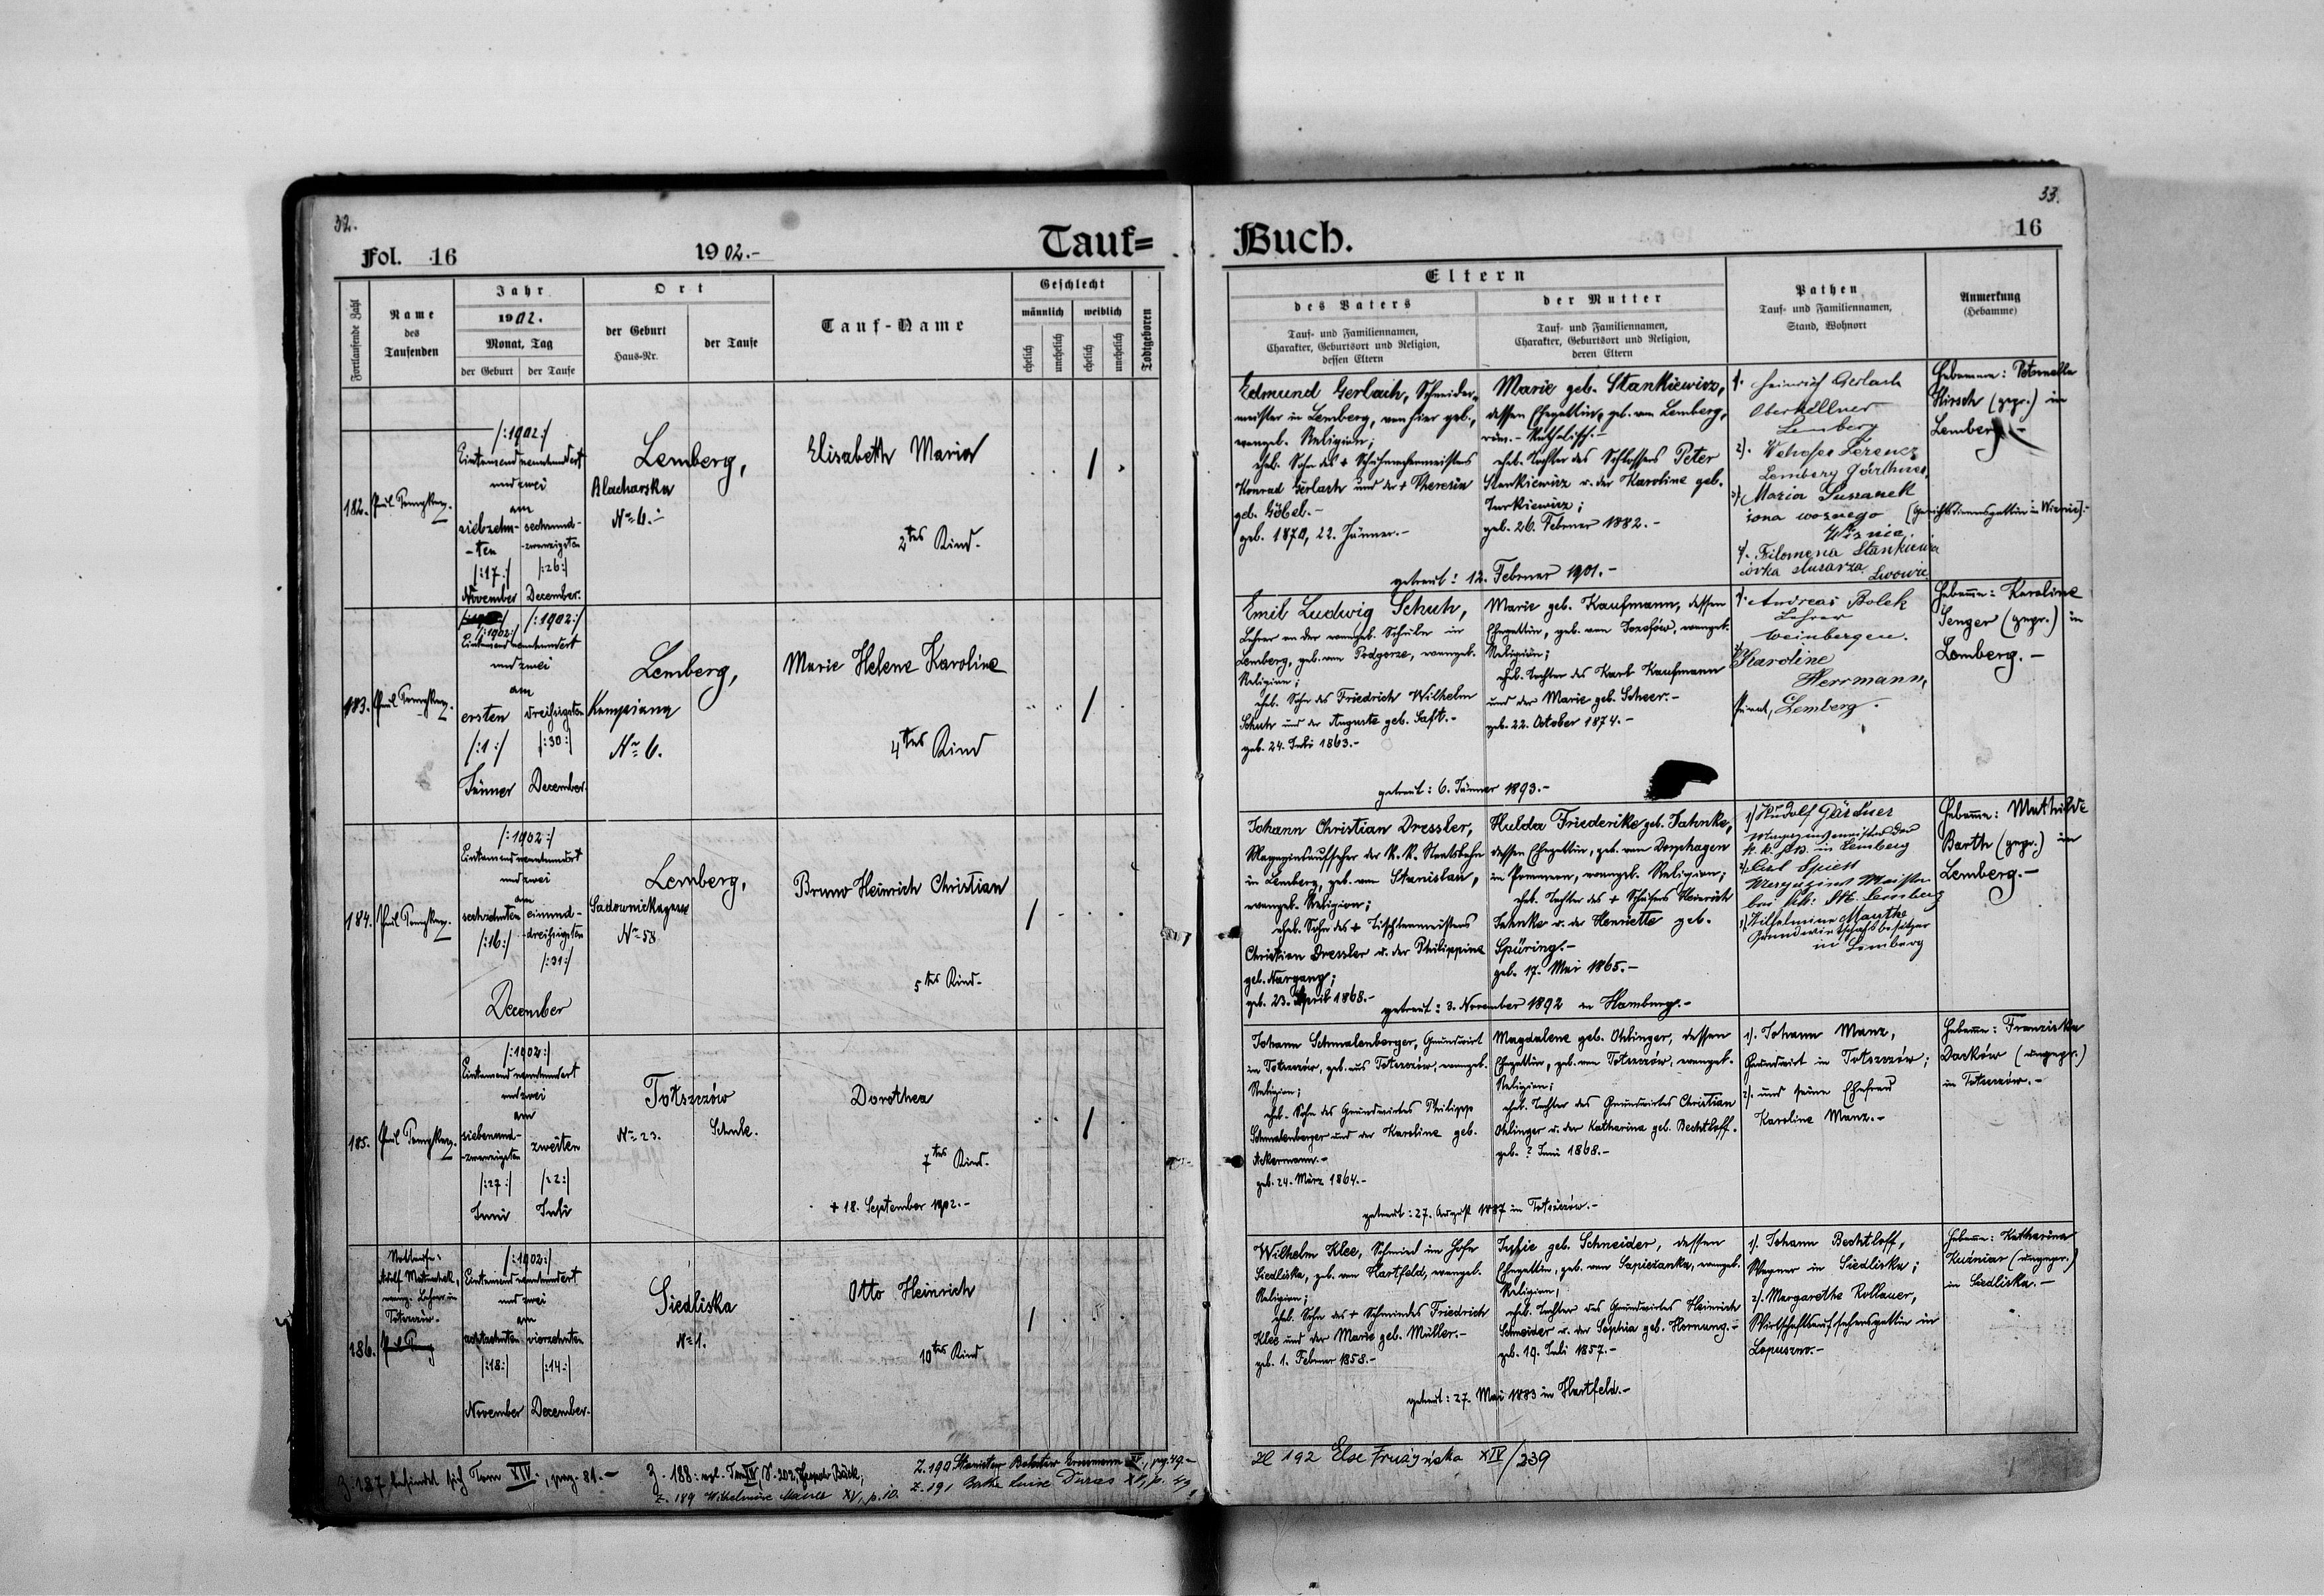 32.
Fol. 16
1902.-
Tauf=
Fortlaufende Zahl
Name
des
Taufenden
Jahr
1902.
Monat, Tag
der Geburt
der Taufe
Ort
der Geburt
Haus-Nr.
der Taufe
Tauf-Name
Geschlecht
männlich
weiblich
ehelich
unehelich
ehelich
unehelich
Todtgeboren
182.
/:1902:/
Eintausendneunhundert
und zwei
am
siebzehn-
-ten
/:17:/
November
sechsund-
-zwanzigsten
/:26:/
December.
Lemberg,
Blacharska
No 6.-
Elisabeth Maria
2tes Kind.
183.
/:1902:/
/:1902:/
Eintausendneunhundert
und zwei
am
ersten
/:1:/
Jänner
dreißigsten
/:30:/
December.
Lemberg,
Kempiana
No 6.
Marie Helene Karoline
4tes Kind
184.
/:1902:/
Eintausendneunhundert
und zwei
am
sechzehnten
/:16:/
einund-
-dreißigsten
/:31:/
December
Lemberg,
Sadownickagasse
No 58
Bruno Heinrich Christian
5tes Kind.
185.
/:1902:/
Eintausendneunhundert
und zwei
am
siebenund-
-zwanzigsten
/:27:/
Juni
zweiten
/:2:/
Juli
Totszczów
No 23.
Schule.
Dorothea
7tes Kind.
+ 18. September 1902.-
186.
Nottaufe:
Adolf
evang. Lehrer in
Totszczów.
/:1902:/
Eintausendneunhundert
und zwei
am
achtzehnten
/:18:/
November
vierzehnten
/:14:/
December.
Siedliska
No 1.
Otto Heinrich
10tes Kind
Z. 187 befindet sich Tom XIV., pag. 81.-
Z. 188: vgl. Tom XIV, S. 202, Bäck;
Z. 189 Wilhelmine XV, p. 10.
Z. 190 pag. 49.-
Z. 191 Luise Duras XV, p. 49
33.
Buch.
16
Eltern
des Vaters
Tauf- und Familiennamen,
Charakter, Geburtsort und Religion,
dessen Eltern
der Mutter
Tauf- und Familiennamen,
Charakter, Geburtsort und Religion,
deren Eltern
Pathen
Tauf- und Familiennamen,
Stand, Wohnort
Anmerkung
(Hebamme)
Edmund Gerlach, Schneider-
meister in Lemberg, von hier geb.,
evangel. Religion;
ehel. Sohn des + Schuhmachermeisters
Konrad Gerlach und der + Theresia
geb. Göbel.-
geb. 1870, 22. Jänner.-
Marie geb. Stankiewicz,
dessen Ehegattin, geb. von Lemberg,
röm.-katholisch.-
ehel. Tochter des Schlossers Peter
Stankiewicz u. der Karoline geb.
Turkiewicz;
geb. 26. Februar 1882.-
getraut: 12. Februar 1901.-
1. Heinrich Gerlach
Oberkellner
Lemberg
2). Ferencz
Lemberg
3) Maria
żona woznego
(Gerichtsdienersgattin in Wisnicz).-
Filomena Stankiewicz
córka slusarza Lwowie
Hebamme: Petronella
Hirsch (gepr.) in
Lemberg.-
Emil Ludwig Schuh,
Lehrer an der evangel. Schule in
Lemberg, geb. von Podgorze, evangel.
Religion;
ehel. Sohn des Friedrich Wilhelm
Schuh und der Auguste geb. Saft.-
geb. 24. Juli 1863.-
Marie geb. Kaufmann, dessen
Ehegattin, geb. von Josefów, evangel.
Religion;
ehel. Tochter des Karl Kaufmann
und der Marie geb. Scheer.-
geb. 22. October 1874.-
getraut: 6. Jänner 1893.-
1. Andreas Bolek
Lehrer
Weinbergen.
2) Karoline
Herrmann,
Privat, Lemberg.
Hebamme: Karoline
Senger (gepr.) in
Lemberg.-
Johann Christian Dressler,
Magazinsaufseher der k. k. Staatsbahn
in Lemberg, geb. von Stanislau,
evangel. Religion;
ehel. Sohn des + Tischlermeisters
Christian Dressler u. der Philippine
geb. Nargang;
geb. 23. April 1868.-
Hulda Friederike geb. Jahnke,
dessen Ehegattin, geb. von Dorphagen
in Pommern, evangel. Religion;
ehel. Tochter des + Schäfers Heinrich
Jahnke u. der Henriette geb.
Spüring.-
geb. 17. Mai 1865.-
getraut: 3. November 1892 in Hamburg.-
1) Rudolf Gärtner
Magazinsmeister der
k. k. in Lemberg
2) Carl Spiess
Magazins Meister
Lemberg
3) Wilhelmine Manthe
Grundwirtschaftsbesitzer
in Lemberg
Hebamme: Mathilde
Barth (gepr.) in
Lemberg.-
Johann Schmalenberger, Grundwirt
in Totszczów, geb. aus Totszczów, evangel.
Religion;
ehel. Sohn des Grundwirtes Philipp
Schmalenberger und der Karoline geb.
Ackermann.-
geb. 24. März 1864.-
Magdalene geb. Ohlinger, dessen
Ehegattin, geb. von Totszczów, evangel.
Religion;
ehel. Tochter des Grundwirtes Christian
Ohlinger u. der Katharina geb. Bechtloff.
geb. ? Juni 1868.-
getraut: 27. August 1887 in Totszczów.-
1). Johann Manz,
Grundwirt in Totszczów;
2). und seine Ehefrau
Karoline Manz.-
Hebamme: Franziska
Darków (ungepr.)
in Totszczów.-
Wilhelm Klee, Schmied im Hofe
Siedliska, geb. von Hartfeld, evangel.
Religion;
ehel. Sohn des + Schmiedes Friedrich
Klee und der Marie geb. Müller.-
geb. 1. Februar 1858.-
Sofie geb. Schneider, dessen
Ehegattin, geb. von Sapiezanka, evangel.
Religion;
ehel. Tochter des Grundwirtes Heinrich
Schneider u. der Sophia geb. Hornung.-
geb. 19. Juli 1857.-
getraut: 27. Mai 1883 in Hartfeld.-
1). Johann Bechtloff,
Wagner in Siedliska;
2). Margarethe Rollauer,
Wirtschaftsaufsehersgattin in
Lopuszna.-
Hebamme: Katharina
Kuzniar (ungepr.)
in Siedliska.-
Zl 192 Else Fruzyńska XIV/239